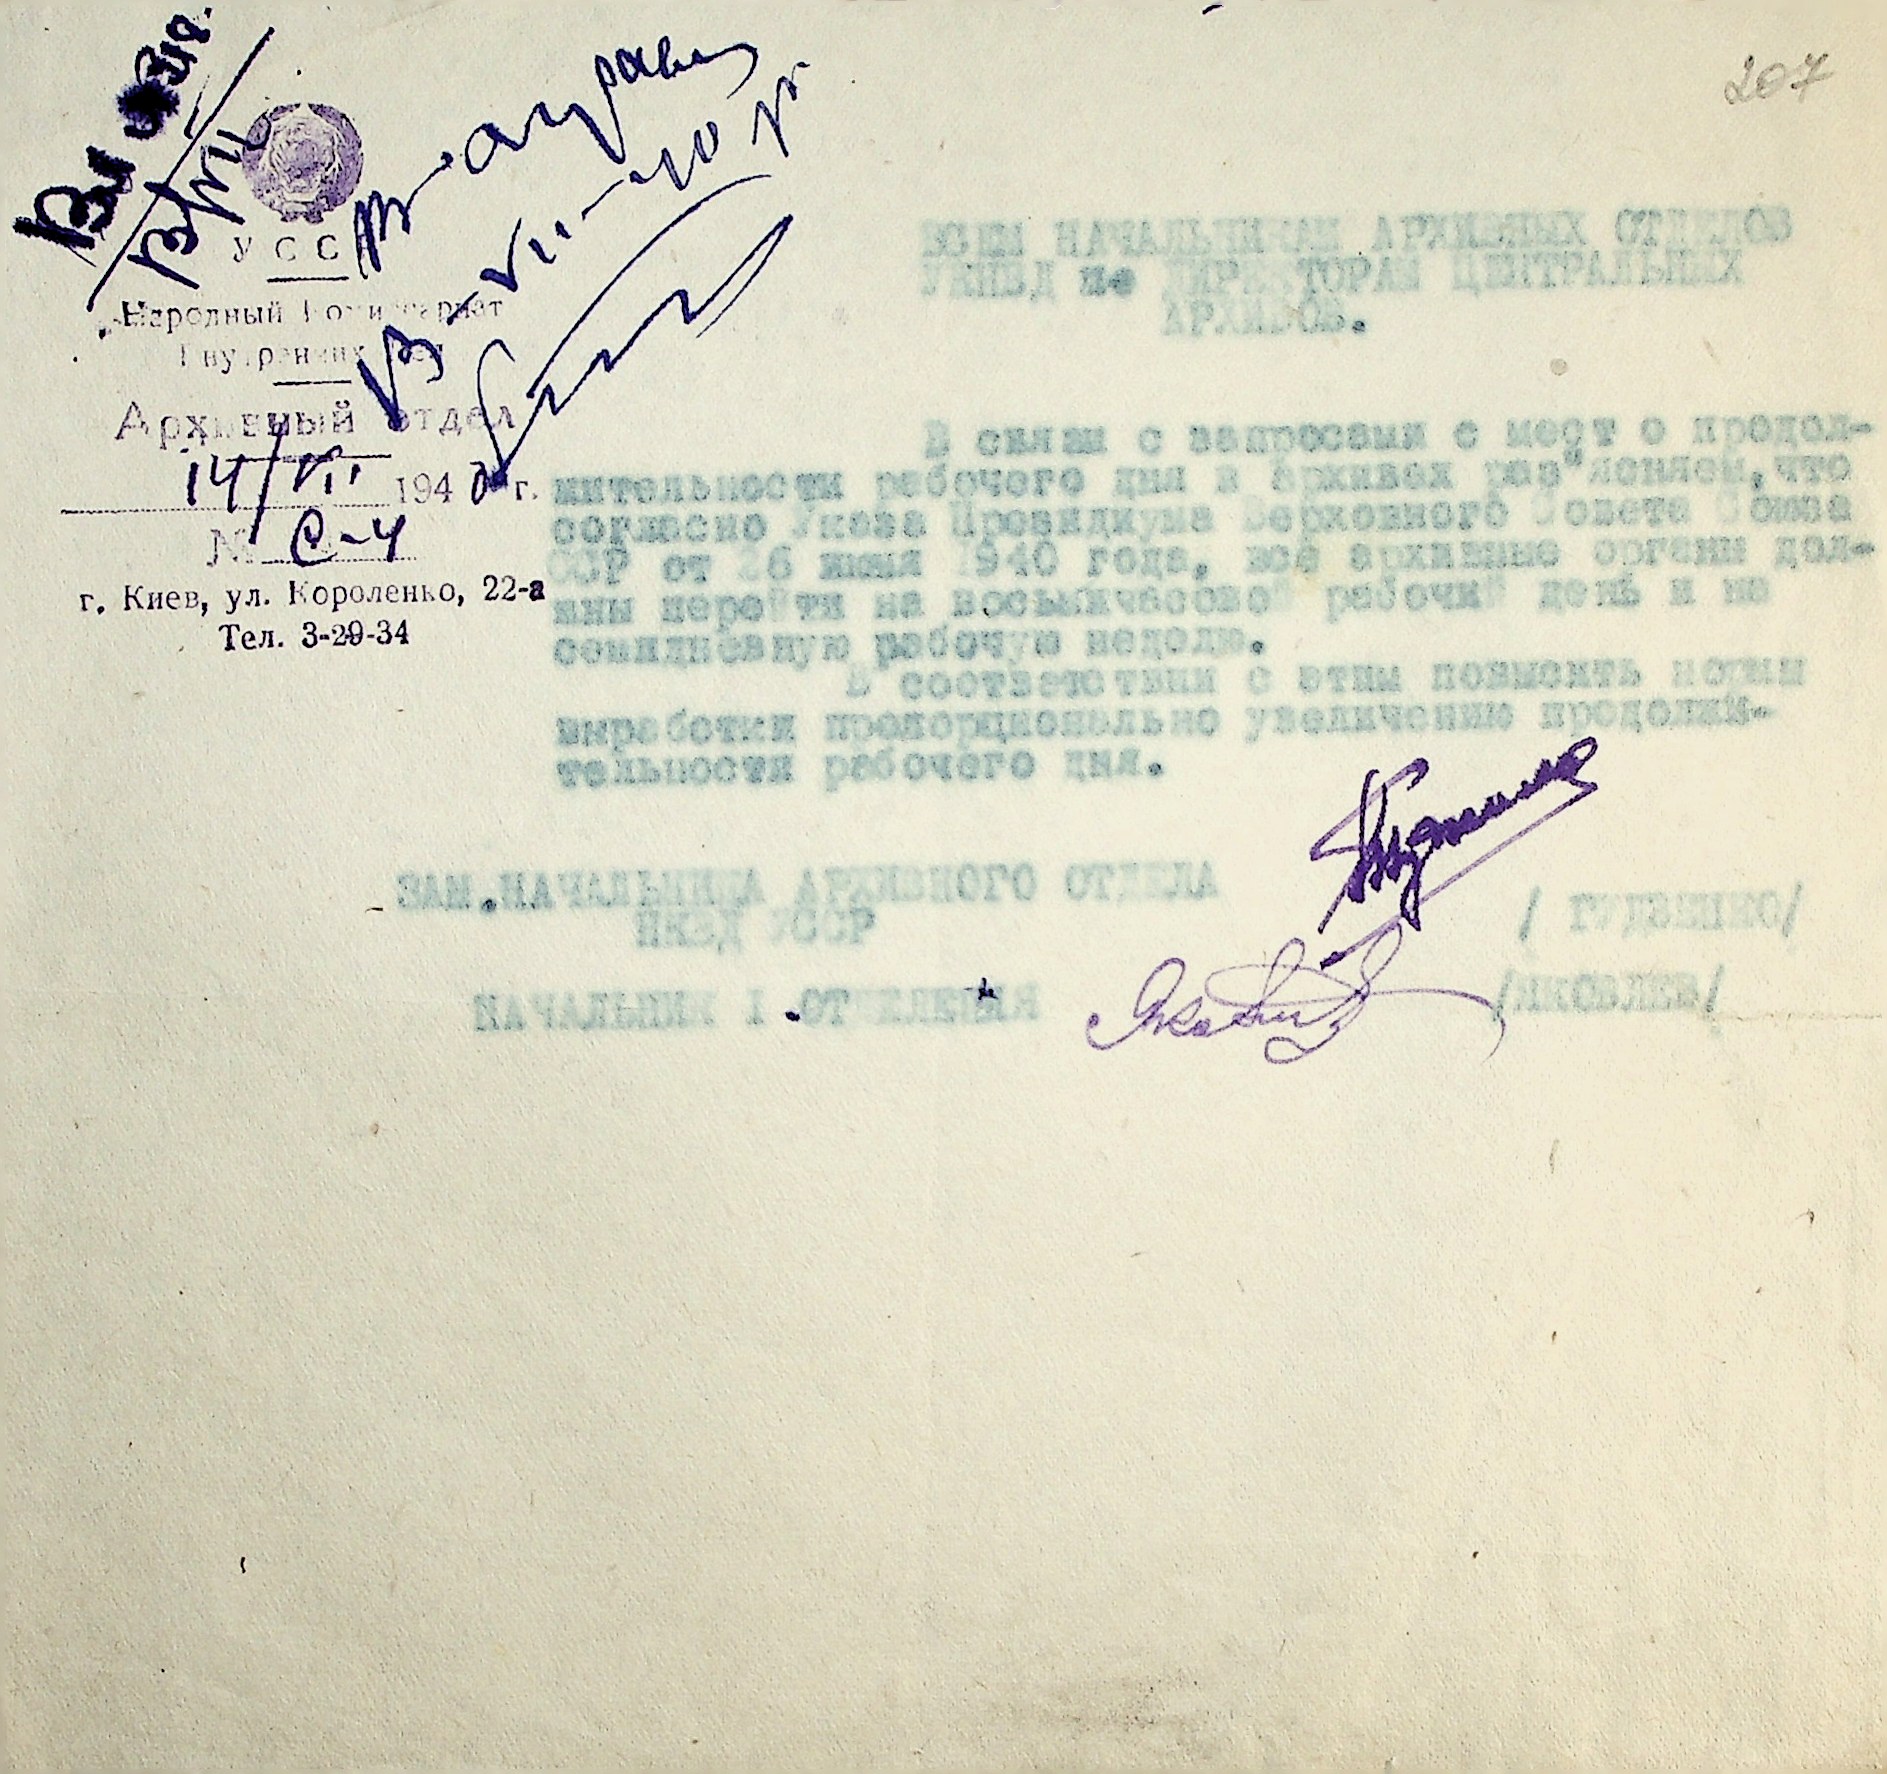 207
УССР
Народный Комиссариат
Внутренних Дел
Архивный отдел
14/VII 1940 г.
№ С-4
г. Киев, ул. Короленко, 22-а
Тел. 3-29-34
VII-40 г
ВСЕМ НАЧАЛЬНИКАМ АРХИВНЫХ ОТДЕЛОВ
УНКВД и ДИРЕКТОРАМ ЦЕНТРАЛЬНЫХ
АРХИВОВ.
В связи с запросами с мест о продол-
жительности рабочего дня в архивах раз"ясняем, что
согласно Указа Президиума Верховного Совета Союза
ССР от 26 июня 1940 года, все архивные органы дол-
жны перейти на восьмичасовой рабочий день и на
семидневную рабочую неделю.
В соответствии с этим повысить нормы
выработки пропорционально увеличению продолжи-
тельности рабочего дня.
ЗАМ.НАЧАЛЬНИКА АРХИВНОГО ОТДЕЛА
НКВД УССР
/ ГУДЗЕНКО/
НАЧАЛЬНИК I .ОТДЕЛЕНИЯ
/ЯКОВЛЕВ/